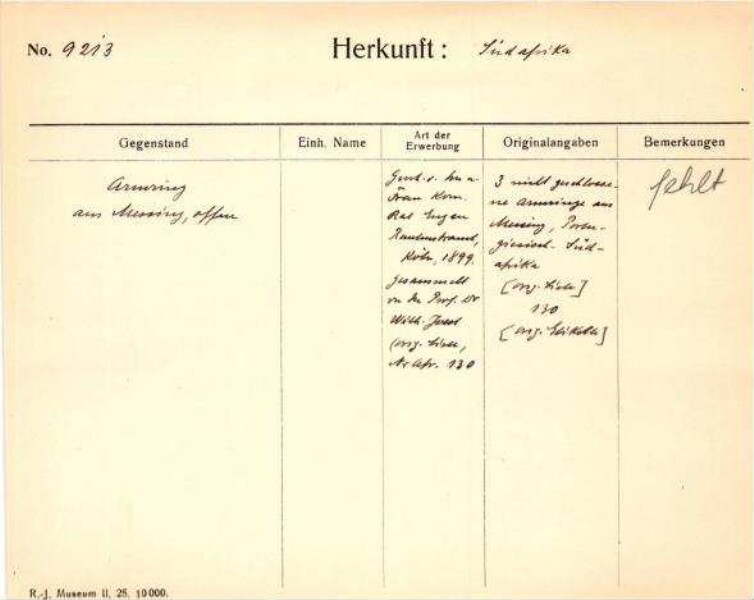 No. 9213
Herkunft: Südafrika
Gegenstand
Einh. Name
Art der
Erwerbung
Originalangaben
Bemerkungen
Armring
aus Messing, offen
Gesch. v.
Frau Kom.
Rat Eugen
Rautenstrauch,
Köln, 1899.
gesammelt
von Prof. Dr
Wilh. Joest
(org. Liste,
Nr Afr. 130
3 nicht geschlosse-
ne Armringe aus
Messing, Portu-
giesisch-Süd-
afrika
[org. Liste]
130
[org. Etikett]
fehlt
R.-J. Museum II. 25. 10000.